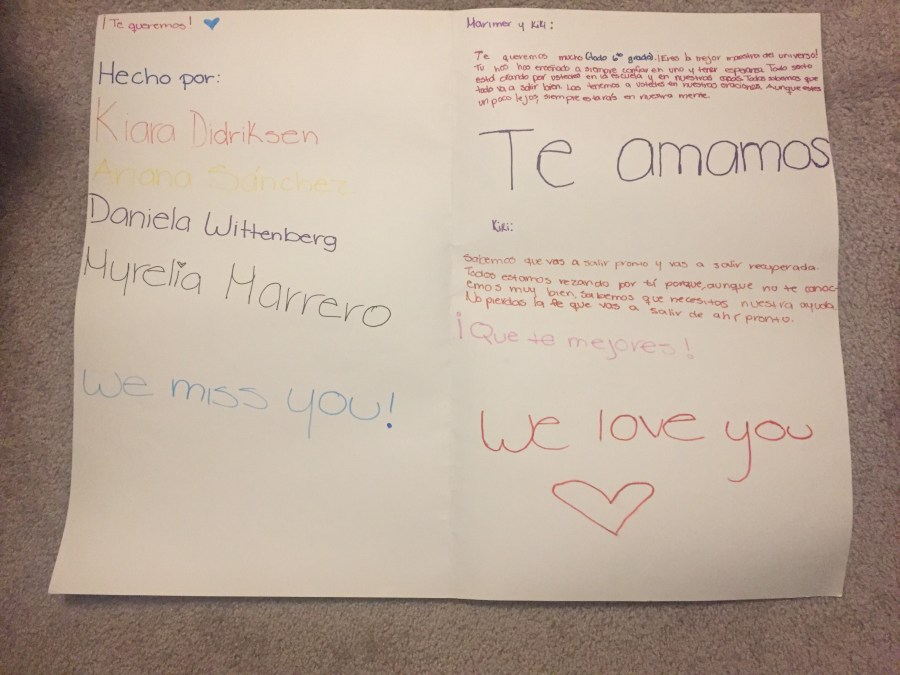 ¡Te queremos!
Hecho por:
Kiara Didriksen
Ariana Sánchez
Daniela Wittenberg
Myrelia Marrero
We miss you!
Marimer y Kiki:
Te queremos mucho (todo 6to grado). ¡Eres la mejor maestra del universo!
Tú nos has enseñado a siempre confiar en uno y tener esperanza. Todo sexto
está orando por ustedes en la escuela y en nuestras casas. Todos sabemos que
todo va a salir bien. Las tenemos a ustedes en nuestras oraciones. Aunque estés
un poco lejos, siempre estarás en nuestra mente.
Te amamos
Kiki:
Sabemos que vas a salir pronto y vas a salir recuperada.
Todos estamos rezando por tí porque, aunque no te conoc-
emos muy bien, sabemos que necesitas nuestra ayuda.
No pierdas la fe que vas a salir de ahí pronto.
¡Que te mejores!
We love you